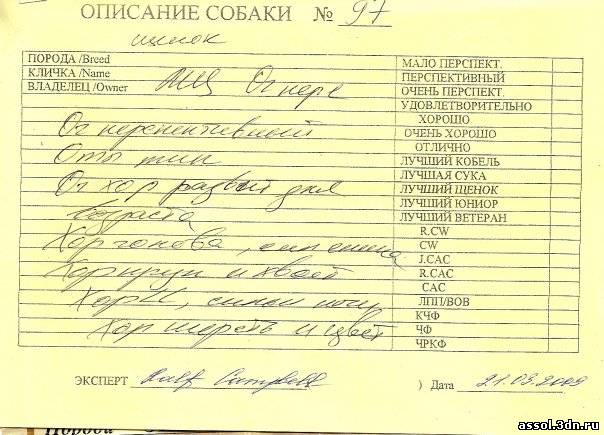 ОПИСАНИЕ СОБАКИ № 97
щенок
ПОРОДА /Breed
КЛИЧКА /Name
ВЛАДЕЛЕЦ /Owner
Оч перс
Оч перспективный
Отл тип
Оч хор развит для
возраста
Хор голова, спина
Хор круп и хвост
Хор, сильн
Хор шерсть и цвет
МАЛО ПЕРСПЕКТ.
ПЕРСПЕКТИВНЫЙ
ОЧЕНЬ ПЕРСПЕКТ.
УДОВЛЕТВОРИТЕЛЬНО
ХОРОШО
ОЧЕНЬ ХОРОШО
ОТЛИЧНО
ЛУЧШИЙ КОБЕЛЬ
ЛУЧШАЯ СУКА
ЛУЧШИЙ ЩЕНОК
ЛУЧШИЙ ЮНИОР
ЛУЧШИЙ ВЕТЕРАН
R.CW
CW
J.CAC
R.CAC
CAC
ЛПП/BOB
КЧФ
ЧФ
ЧРКФ
ЭКСПЕРТ Ralf Campbell ) Дата 21.03.2009
Порода
assol.3dn.ru